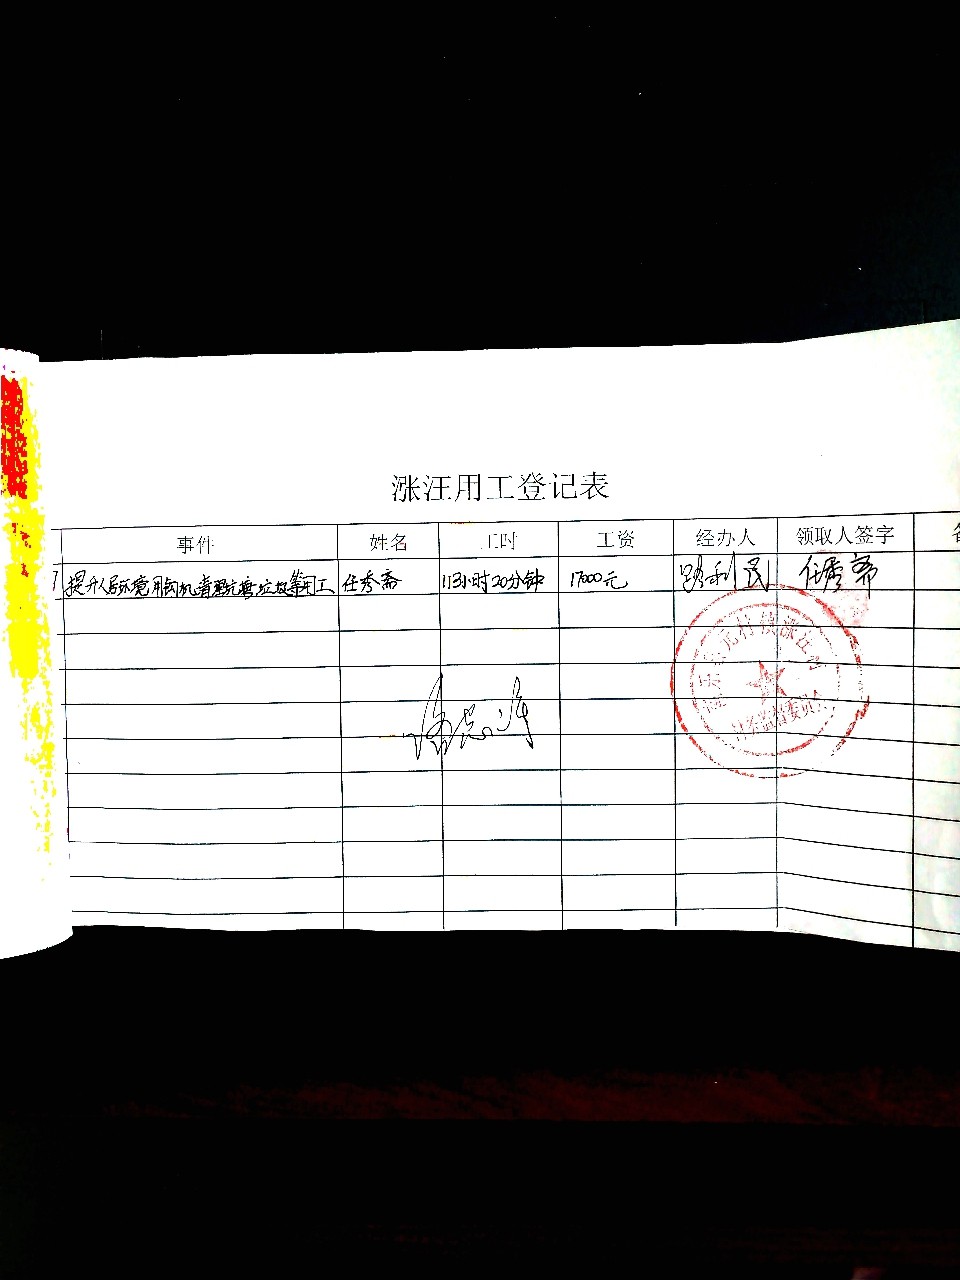 涨汪用工登记表
事件 姓名 工时 工资 经办人 领取人签字
提升人居环境用钩机清理坑塘垃圾等用工 任秀斋 113小时20分钟 17000元 路利民 任秀斋
村务监督委员会